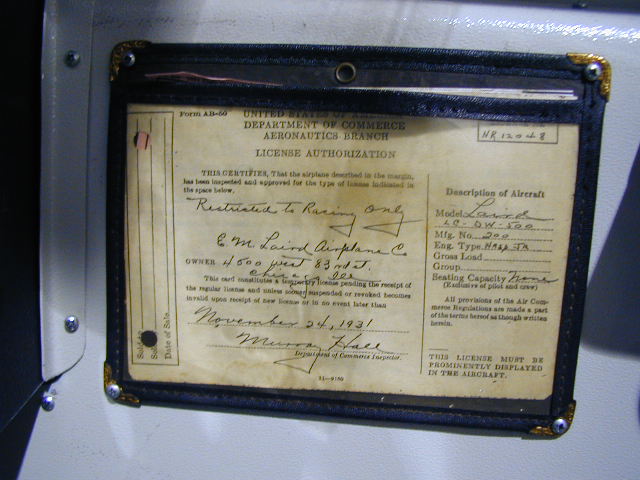 Form AB-60
UNITED STATES OF
DEPARTMENT OF COMMERCE
AERONAUTICS BRANCH
LICENSE AUTHORIZATION
THIS CERTIFIES, That the airplane described in the margin,
has been inspected and approved for the type of license indicated in
the space below.
Restricted to Racing Only
E. M. Laird Airplane Co
OWNER 4500 West 83rd St.
Chicago Ill
This card constitutes a temporary license pending the receipt of
the regular license and unless sooner suspended or revoked becomes
invalid upon receipt of new license or in no event later than
November 24, 1931
Murray Hall
Department of Commerce Inspector.
11-9180
NR 12048
Description of Aircraft
Model Laird
LC-DW-500
Mfg. No. 200
Eng. Type Wasp Jr
Gross Load
Group
Seating Capacity None
(Exclusive of pilot and crew)
All provisions of the Air Com-
merce Regulations are made a part
of the terms hereof as though written
herein.
THIS LICENSE MUST BE
PROMINENTLY DISPLAYED
IN THE AIRCRAFT.
Sold
Sold
Date of Sale